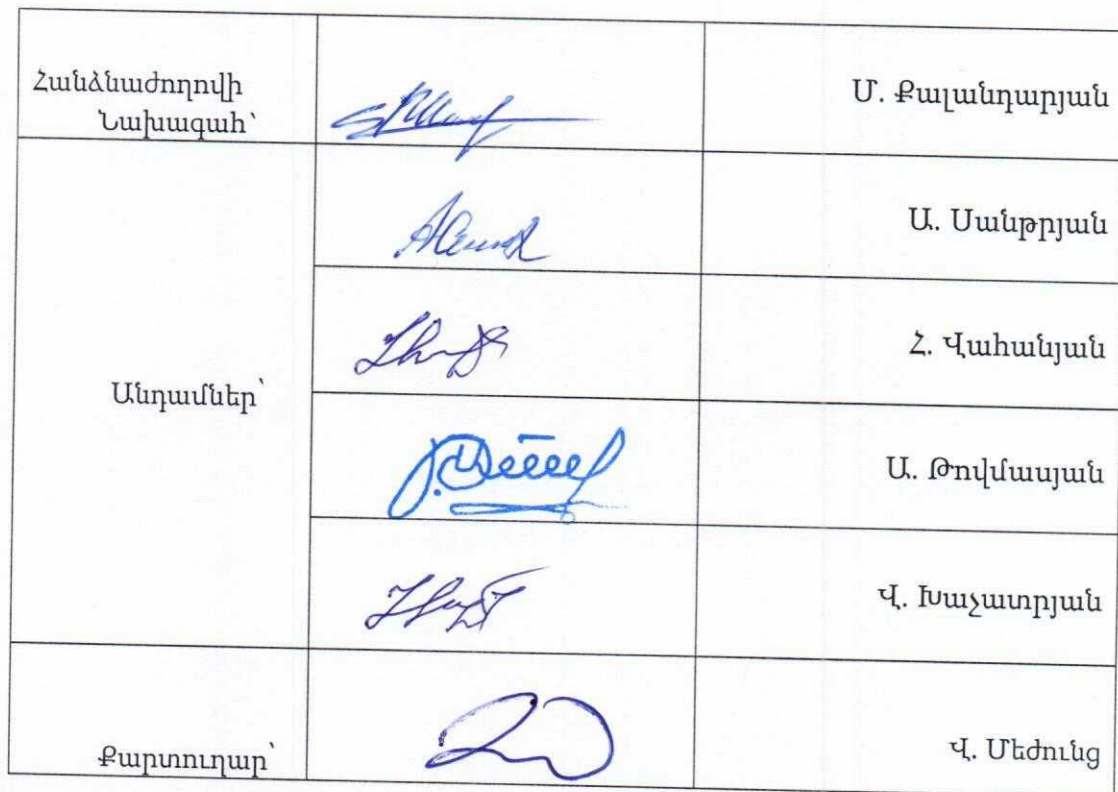 Հանձնաժողովի
Նախագահ՝
Մ. Քալանդարյան
Ա. Սանթրյան
Հ. Վահանյան
Անդամներ՝
Ա. Թովմասյան
Վ. Խաչատրյան
Քարտուղար՝
Վ. Մեժունց